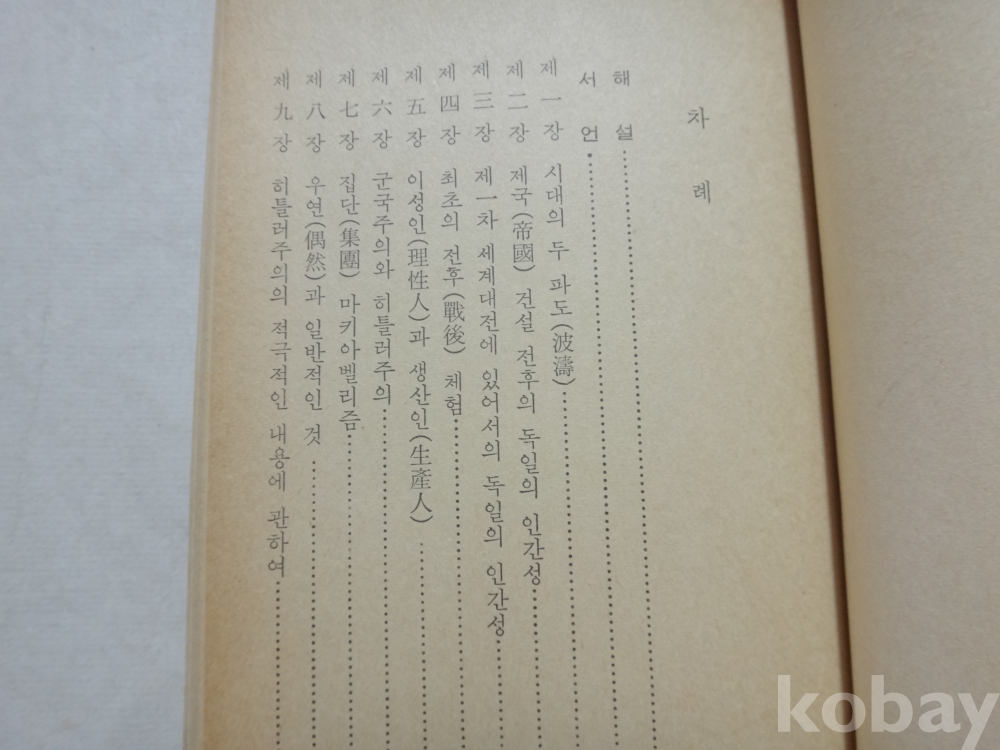 차 례
해 설
서 언
제 一 장 시대의 두 파도(波濤)
제 二 장 제국(帝國) 건설 전후의 독일의 인간성
제 三 장 제一차 세계대전에 있어서의 독일의 인간성
제 四 장 최초의 전후(戰後) 체험
제 五 장 이성인(理性人)과 생산인(生產人)
제 六 장 군국주의와 히틀러주의
제 七 장 집단(集團) 마키아벨리즘
제 八 장 우연(偶然)과 일반적인 것
제 九 장 히틀러주의의 적극적인 내용에 관하여
kobay